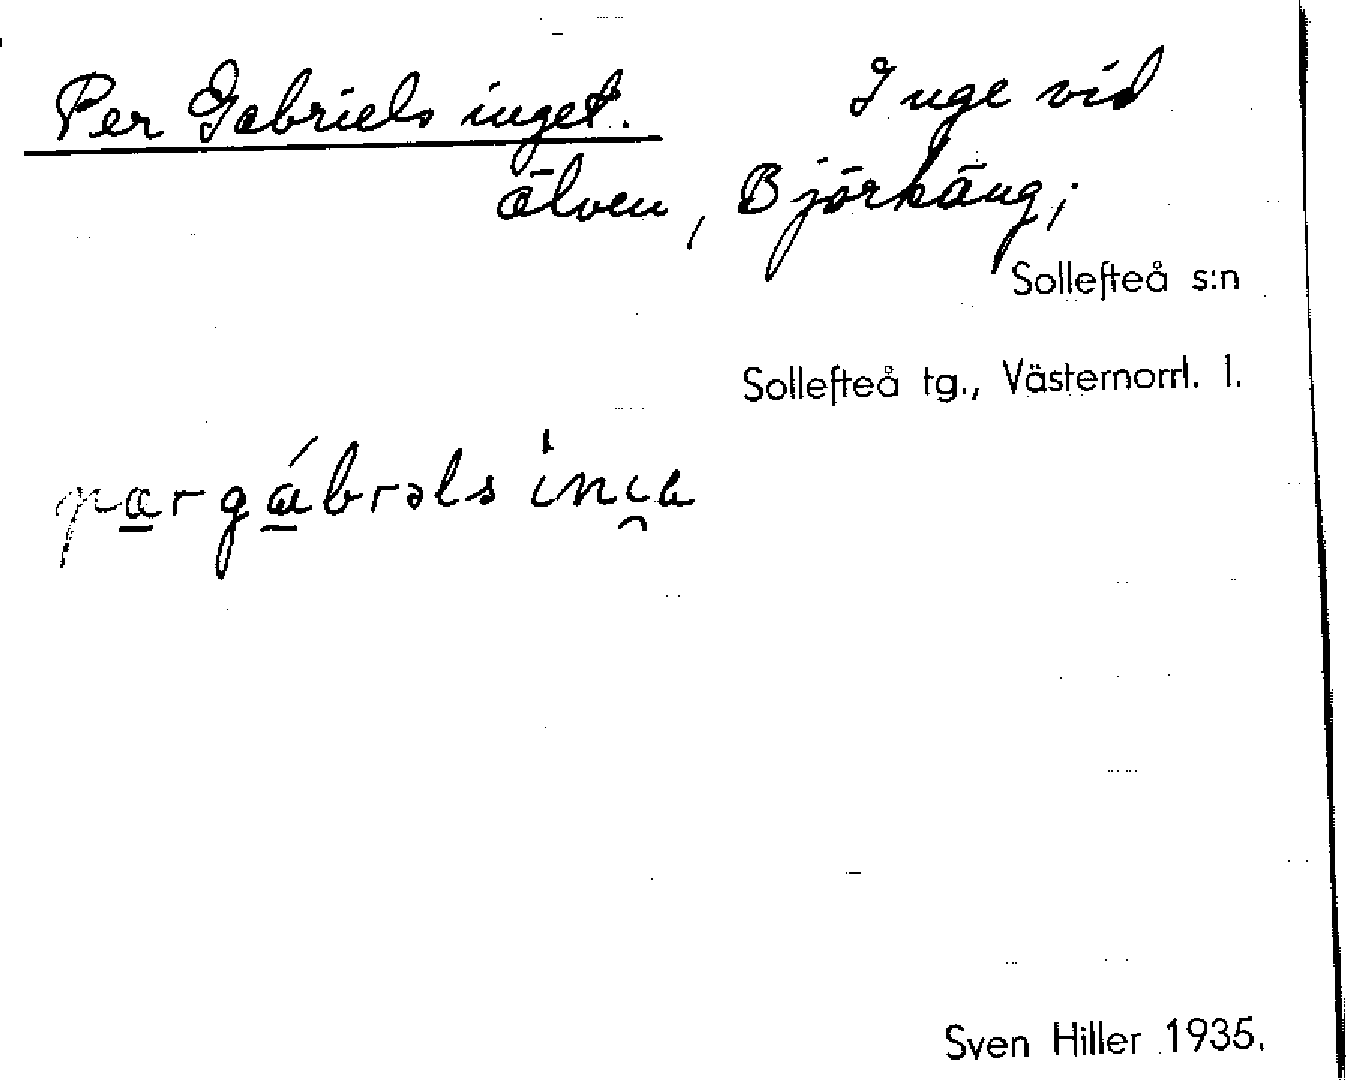 Per Gabriels inget. Inge vid
älven, Björkäng;
Sollefteå s:n
Sollefteå tg., Västernorrl. l.
Sven Hiller 1935.